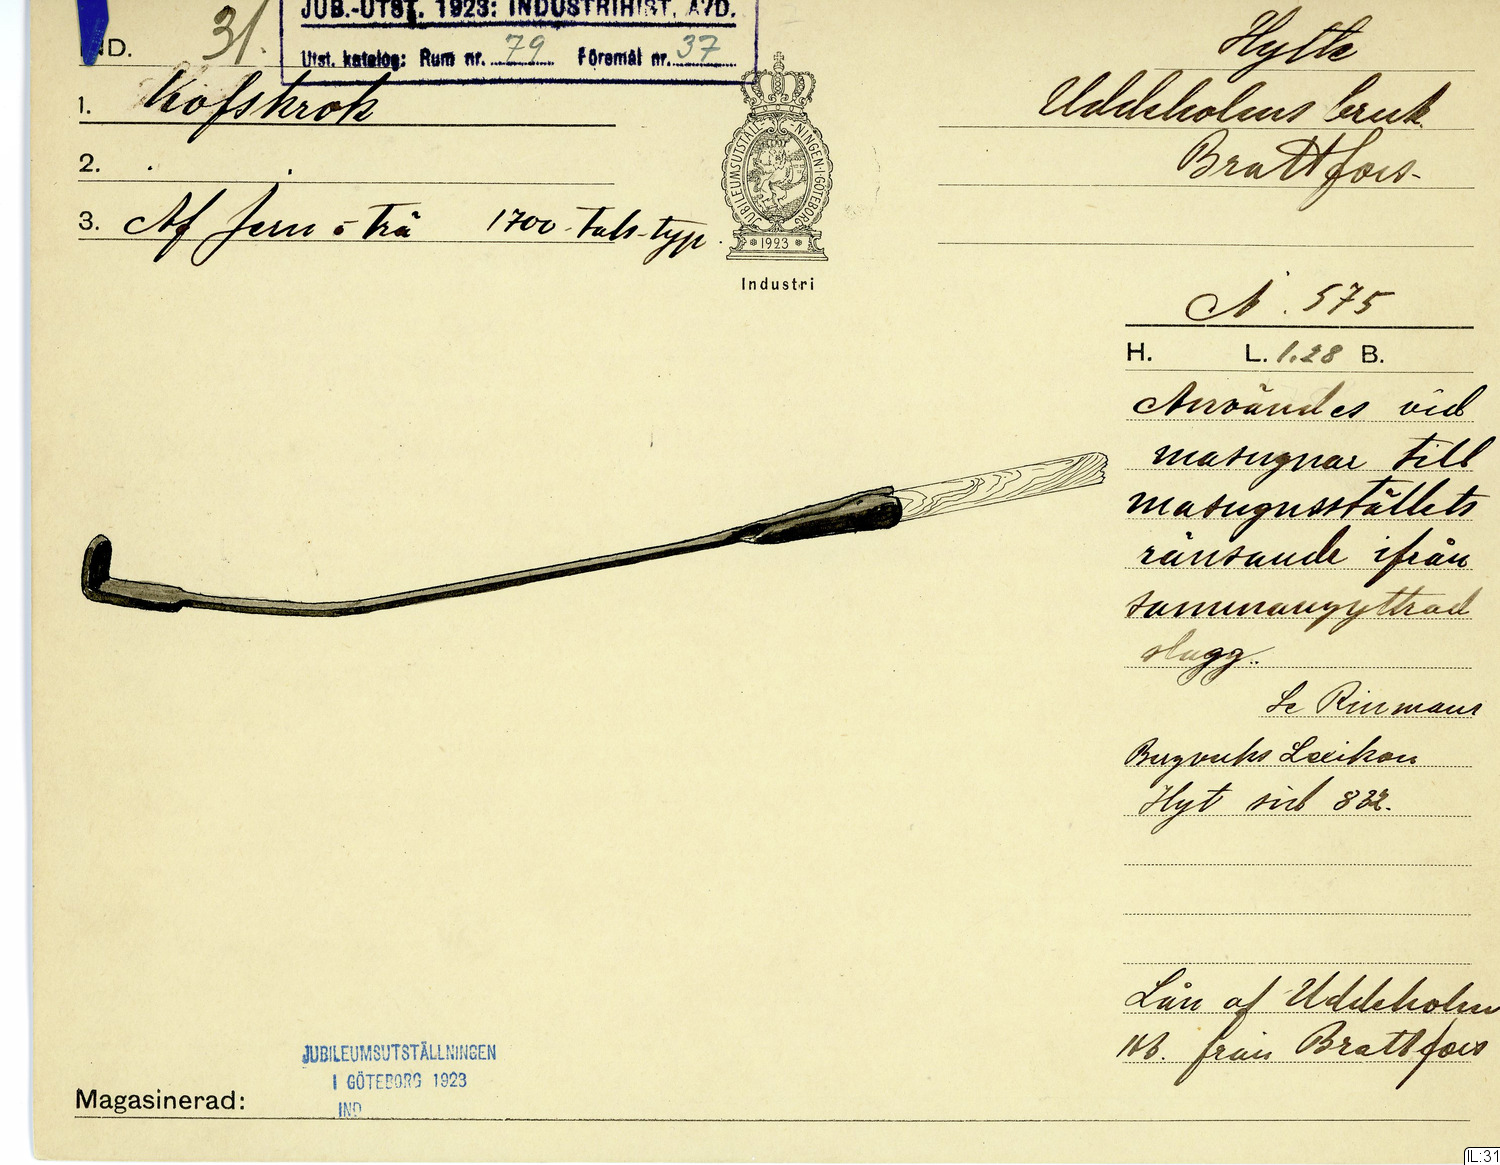 JUB.-UTST. 1923: INDUSTRIHIST. AVD.
Utst. katalog: Rum nr. 79 Föremål nr. 37
IND. 31.
1. Kofskrok
2.
3. Af Jern o Trä 1700-tals-typ.
JUBILEUMSUTSTÄLLNINGEN·I·GÖTEBORG
1923
Industri
Hytte
Uddeholms bruk
Brattfors
N. 575
H. L. 1.28 B.
Användes vid
masugnar till
masugnsställets
ränsande ifrån
sammangyttrad
slagg.
Se Rinmans
Bergverks Lexikon
Hyt sid 832.
Lån af Uddeholm
från Brattfors
JUBILEUMSUTSTÄLLNINGEN
I GÖTEBORG 1923
IND
Magasinerad:
IL:31